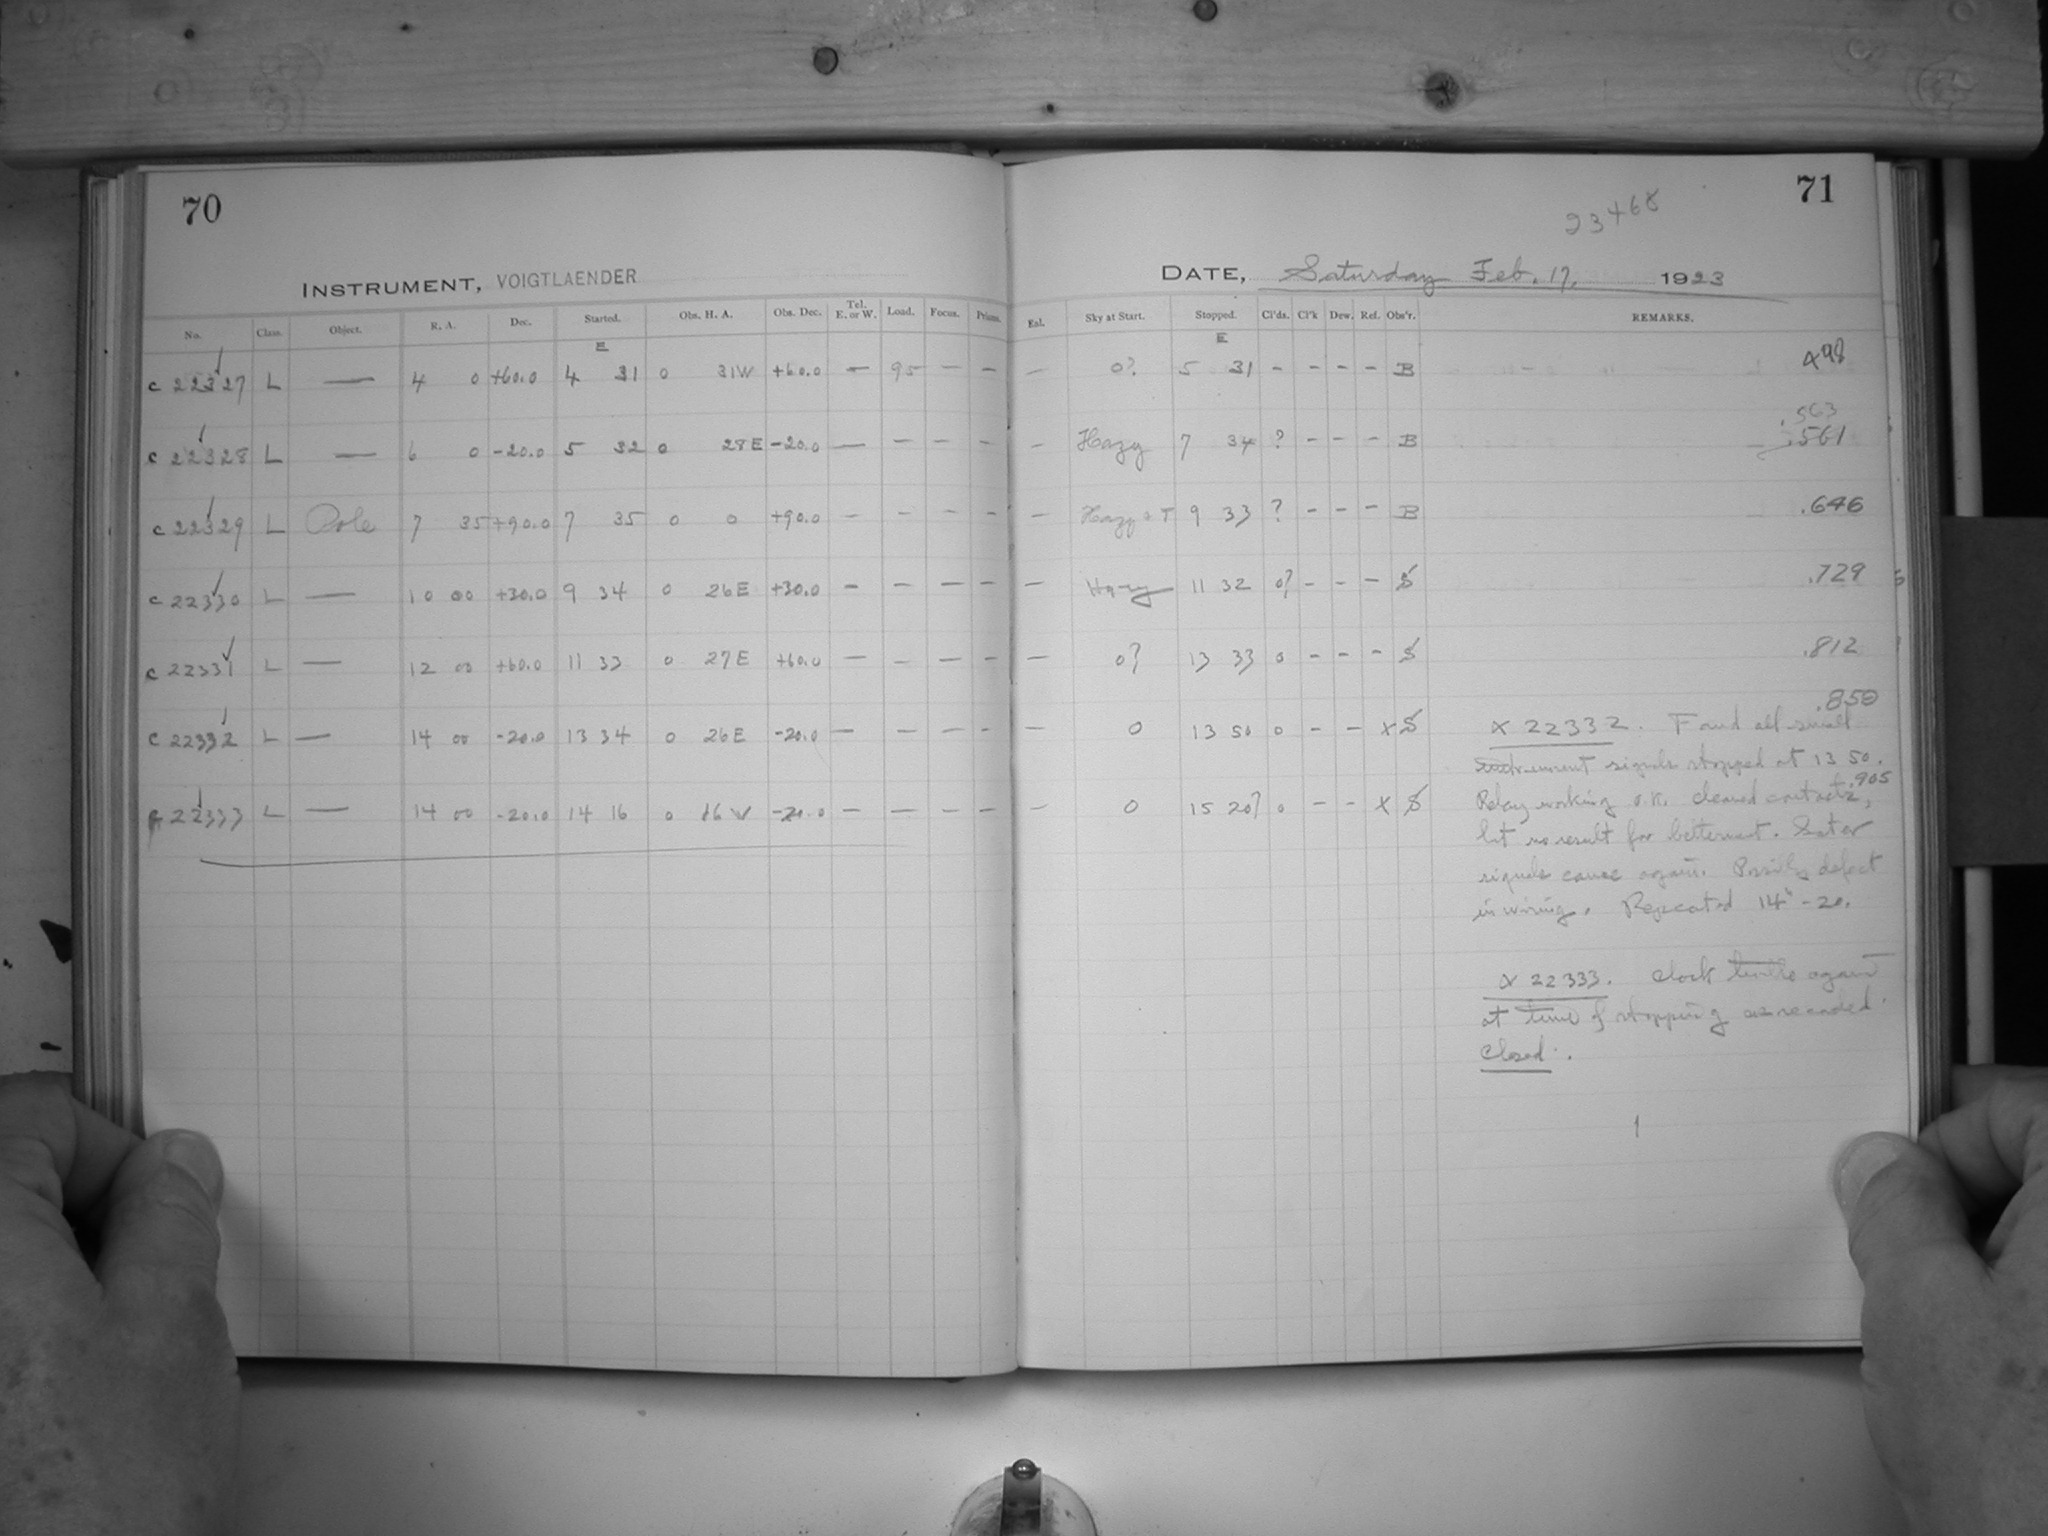 70
INSTRUMENT, VOIGTLAENDER
No. Class. Object. R. A. Dec. Started. Obs. H. A. Obs. Dec. Tel. E. or W. Load. Focus. Prisms.
E
c 22327 L — 4 0 +60.0 4 31 0 31W +60.0 — 95 — —
c 22328 L — 6 0 -20.0 5 32 0 28E -20.0 — — — —
c 22329 L Pole 7 35 +90.0 7 35 0 0 +90.0 — — — —
c 22330 L — 10 00 +30.0 9 34 0 26E +30.0 — — — —
c 22331 L — 12 00 +60.0 11 33 0 27E +60.0 — — — —
c 22332 L — 14 00 -20.0 13 34 0 26E -20.0 — — — —
c 22333 L — 14 00 -20.0 14 16 0 16W -20.0 — — — —
71
23468
DATE, Saturday Feb. 17, 1923
Enl. Sky at Start. Stopped. Cl'ds. Cl'k Dew. Ref. Obs'r. REMARKS.
E
— 0? 5 31 - - - - B
498
.563
— Hazy 7 34 ? - - - B .561
— Hazy + T 9 33 ? - - - B .646
— Hazy 11 32 0? - - - S .729
— 0? 13 33 0 - - - S .812
.850
— 0 13 50 0 - - X S X 22332. Found all small
instrument signals stopped at 13 50.
.905
— 0 15 20? 0 - - X S Relay working o.k. cleaned contacts,
but no result for betterment. Later
signals came again. Possibly defect
in wiring. Repeated 14h -20.
X 22333. Clock again
at time of stopping as recorded
Closed.